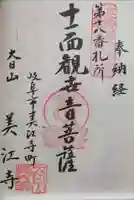 奉納経
第十八番札所
十一面観世音菩薩
岐阜市美江寺町
大日山
美江寺